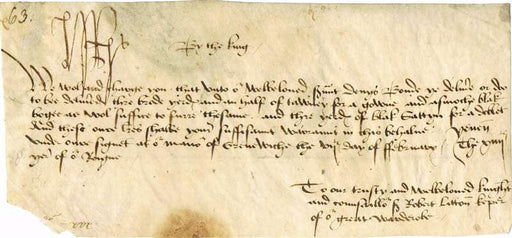 63.
HR
By the king
We wol and charge you that unto oʳ Welbeloved Sṽnt Denys ye delivʳ or do
to be delivʳd thre brod yerds and an half of tawney for a gowne and asmoche blak
bogee as wol suffice to furre thesame and thre yerds of blak Satyn for a doblet
And these oure lres shalbe your suffisant Warrant in this behalve Yeven
undre oure signet at oʳ manoʳ of Grenwiche the day of ffebruary The
yere of oʳ Reigne
To our trusty and Welbeloved knight
and counsaillor Sʳ Robert Litton kepʳ
of oʳ great Warderobe